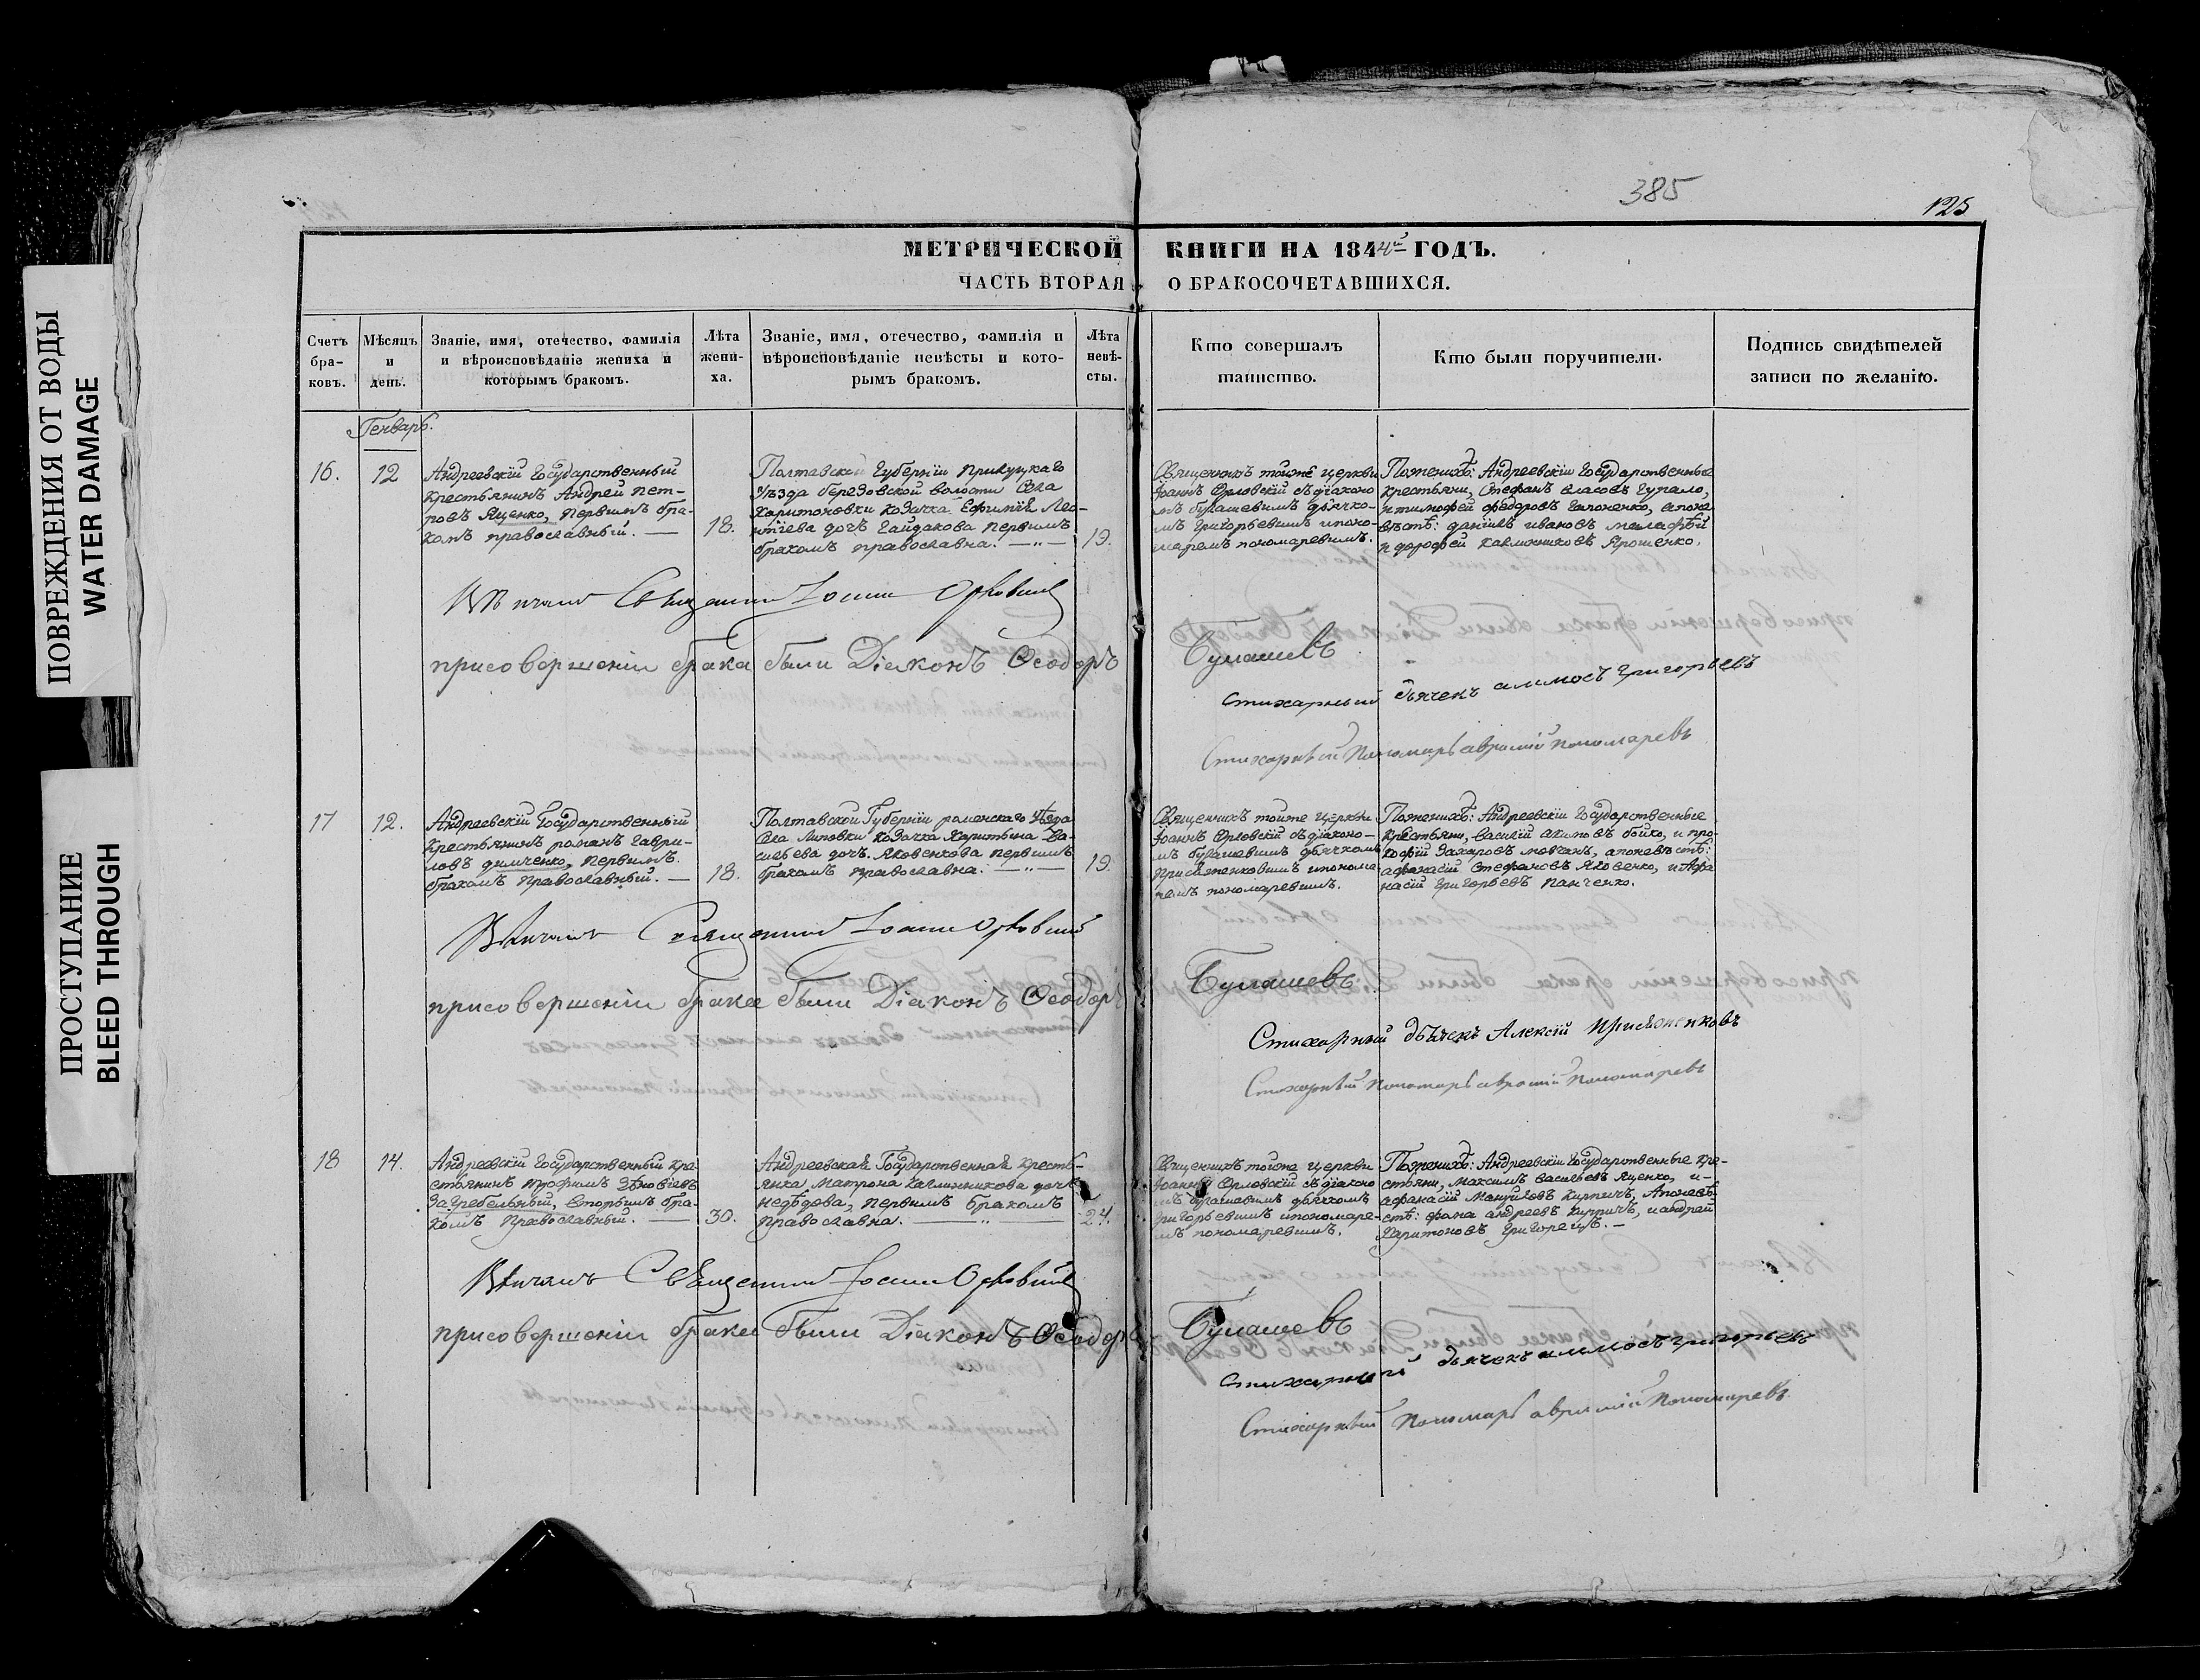 ПОВРЕЖДЕНИЯ ОТ ВОДЫ
WATER DAMAGE
ПРОСТУПАНИЕ
BLEED THROUGH
385
125
МЕТРИЧЕСКОЙ КНИГИ НА 1844й ГОДЪ.
ЧАСТЬ ВТОРАЯ О БРАКОСОЧЕТАВШИХСЯ.
Счетъ
бра-
ковъ.
Мѣсяцъ
и
день.
Званіе, имя, отечество, фамилія
и вѣроисповѣданіе жениха и
которымъ бракомъ.
Лѣта
жени-
ха.
Званіе, имя, отечество, фамилія и
вѣроисповѣданіе невѣсты и кото-
рымъ бракомъ.
Лѣта
невѣ-
сты.
Кто совершалъ
таинство.
Кто были поручители.
Подпись свидѣтелей
записи по желанію.
Генварь.
16.
12
Андреевскій Государственный
крестьянинъ Андрей пет-
ровъ Яценко, первымъ бра-
комъ православный. —
18.
Полтавской Губерніи прилуцкаго
уѣзда березовской волости Села
Харитоновки козачка Ефимія Лео-
нтіева дочь Гайдакова первымъ
бракомъ православна. — „ —
19.
Священникъ тойже церкви
Іоаннъ Орловскій съ діаконо
мъ булашевимъ дьячко-
мъ григорьевимъ ипоно-
маремъ пономаревимъ.
Поженихѣ: Андреевскіи Государственные
крестьяни, Стефанъ власовъ Гупало,
и тимофей федоровъ Гапоненко, апоне
вѣстѣ: даніилъ ивановъ
и дорофей калинниковъ Ярошенко.
Вѣнчалъ Священникъ Іоаннъ Орловскій
присовершеніи брака были Діаконъ Ѳеодоръ Булашевъ
стихарный дьячекъ Григорьевъ
Стихарный Пономарь аврамій пономаревъ
17
12.
Андреевскій Государственный
крестьянинъ романъ Гаври-
ловъ димченко, первимъ
бракомъ православный. —
18.
Полтавской Губерніи роменскаго уѣзда
Села Липовки козачка Харитина Ва-
сильева дочь Яковенкова первимъ
бракомъ православна. — „ —
19.
Священникъ тойже церкви
Іоаннъ Орловскій съ діаконо-
мъ булашевимъ дьячкомъ
ипонома-
ремъ пономаревимъ.
Поженихѣ: Андреевскіи Государственные
крестьяни, василій акимовъ бойко, и про-
кофій Захаровъ мовчанъ, апоневѣстѣ:
афанасій Стефановъ Яковенко, и Афа
насій Григорьевъ панченко.
Вѣнчалъ Священникъ Іоаннъ Орловскій
присовершеніи брака были Діаконъ Ѳеодоръ Булашевъ
Стихарный дьячекъ Алексій
Стихарный пономарь аврамій пономаревъ
18
14.
Андреевскій Государственный кре
стьянинъ трофимъ
Загребельный, вторымъ бра-
комъ православный. —
30.
Андреевская Государственная кресть-
янка Матрона калинникова дочь
недѣдова, первимъ бракомъ
православна. — „ —
24.
Священникъ тойже церкви
Іоаннъ Орловскій съ діаконо
мъ булашевимъ дьячкомъ
григорьевимъ ипономаре-
мъ пономаревимъ.
Поженихѣ: Андреевскіи Государственные кре-
стьяни, максимъ васильевъ Яценко, и-
афанасій Мануйловъ кирпичъ, Апоневѣ-
стѣ: фома андреевъ кирпичъ, и андрей
Харитоновъ григорецъ. —
Вѣнчалъ Священникъ Іоаннъ Орловскій
присовершеніи брака были Діаконъ Ѳеодоръ Булашевъ
стихарный дьячекъ григорьевъ
Стихарный пономарь аврамій пономаревъ